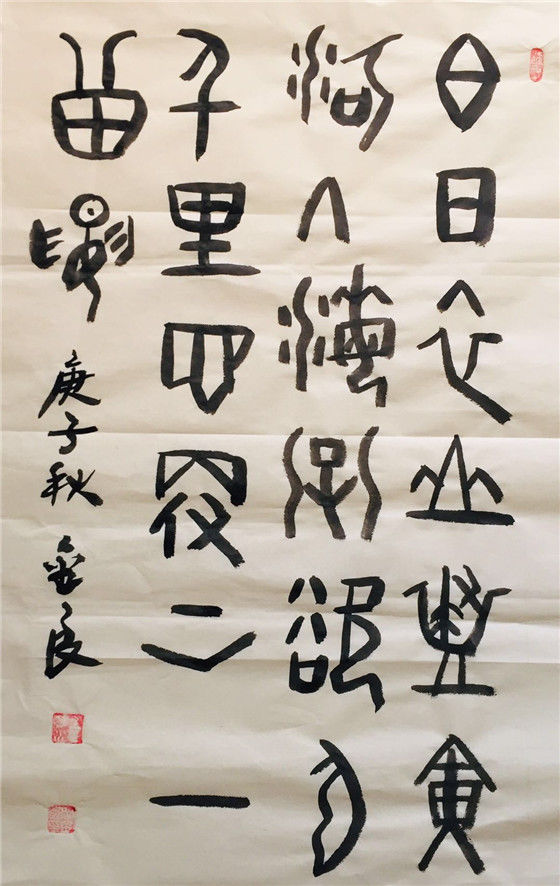 白日依山盡黄
河入海流欲窮
千里目更上一
層樓
庚子秋 金良